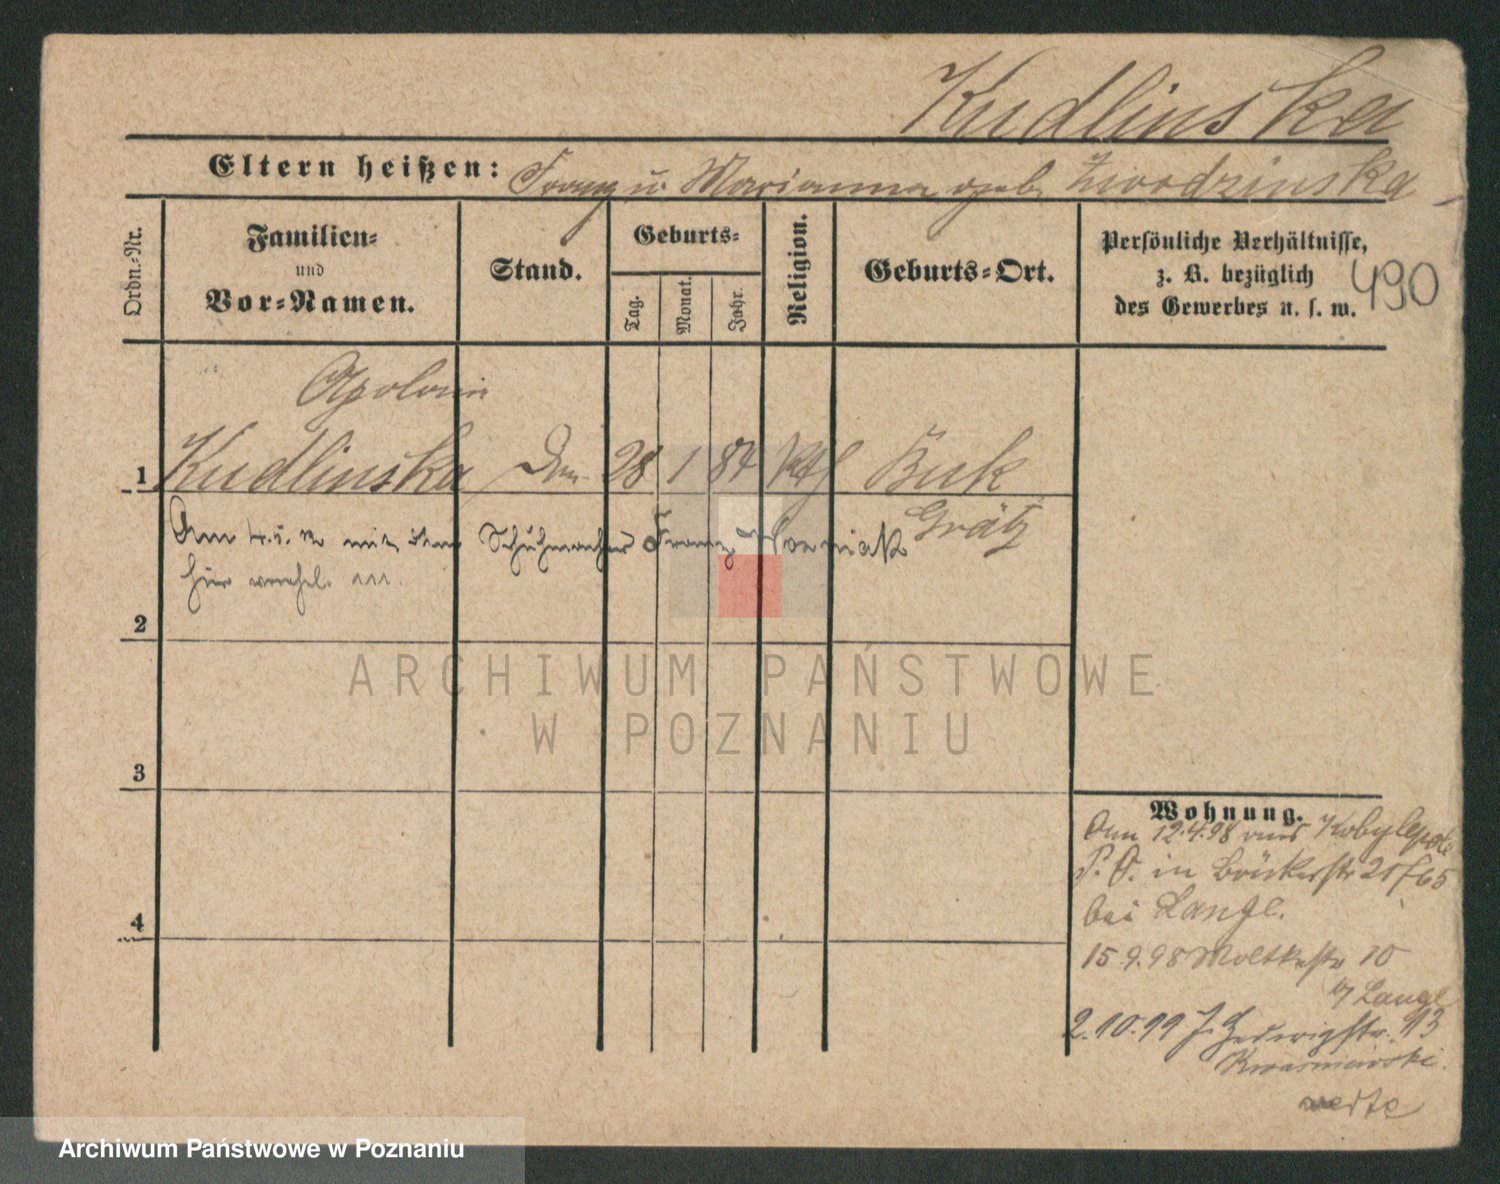 Kudlinska
Eltern heißen: Franz u. Marianna geb. Zwodzinska
Ordn.-Nr.
Familien-
und
Vor-Namen.
Stand.
Geburts-
Tag.
Monat.
Jahr.
Religion.
Geburts-Ort.
Persönliche Verhältnisse,
z. B. bezüglich
des Gewerbes u. s. w.
490
Apolonia
1 Kudlinska 28 1 84 Kth Buk
Grätz
mit dem Schuhmacher Franz Woźniak
hier verehel.
2
3
4
Wohnung.
Am 12.4.98 aus Kobylepole
P. O. in
bei Lange.
15.9.98 Moltkestr 10
b/ Lange
2.10.99 Hedwigstr. 13
Kwasniewski.
ARCHIWUM PAŃSTWOWE
W POZNANIU
Archiwum Państwowe w Poznaniu